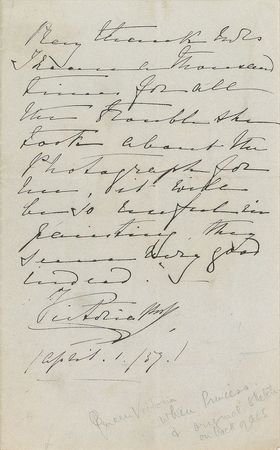 Pray thank Mrs
Thorn a thousand
times for all
the trouble she
took about the
Photograph for
me, it will
be so useful in
painting, they
seem very good
indeed.
Victoria
April. 1./57.
Queen Victoria
when Princess
& original sketch
on back of